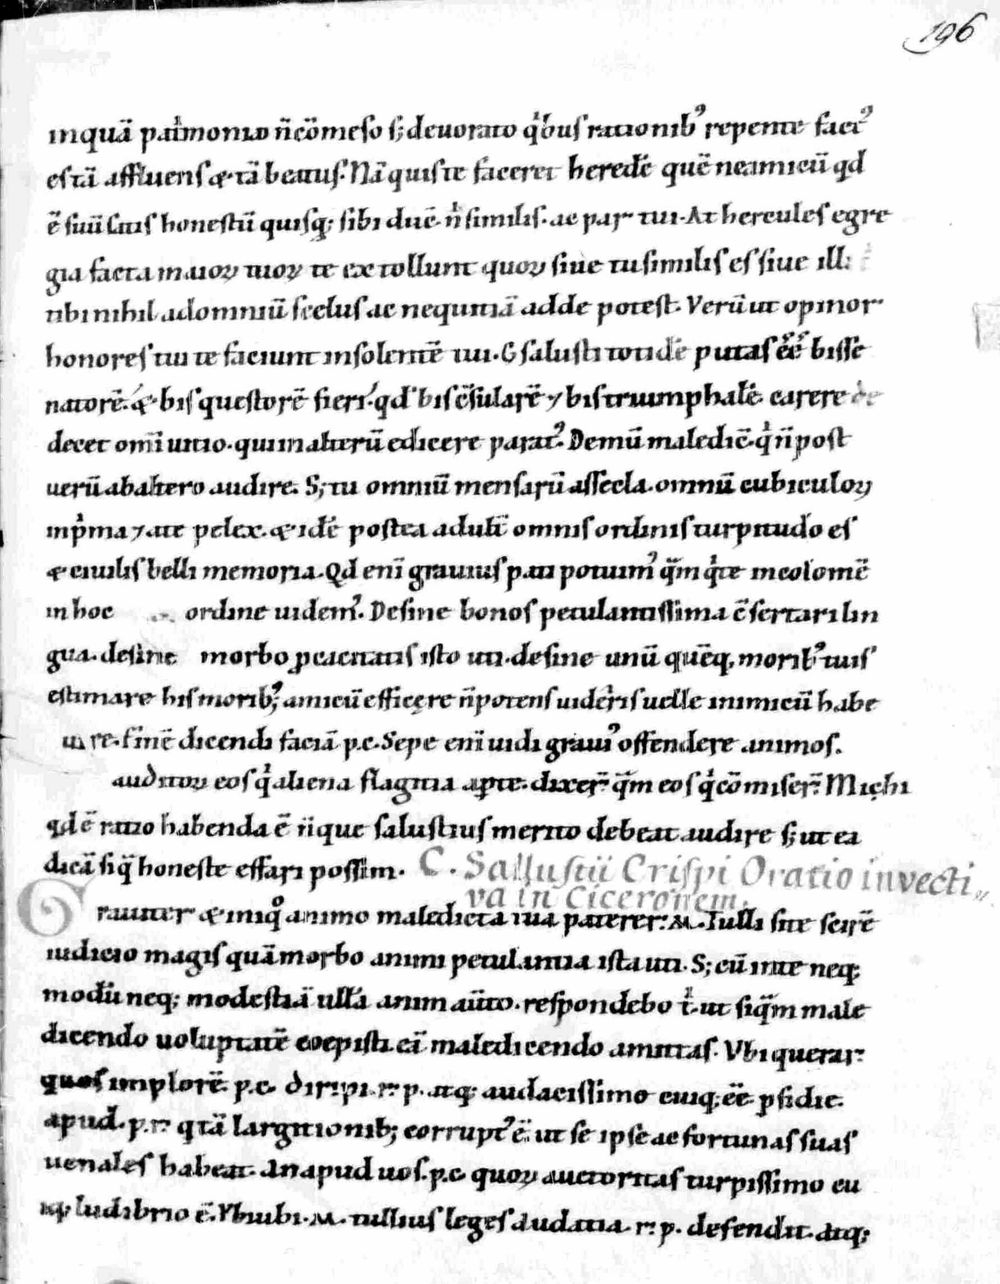 196
inquā patrimonio n̄ cōmeso s; deuorato q'bus rationib' repente fact'
es tā affluens & tā beatus. Nā quis te faceret heredē quē ne amicū qd
ē suū satis honestū quisq; sibi ducē n' similis. ac par tui. At hercules egre
gia facta maioꝝ tuoꝝ te extollunt quoꝝ siue tu similis es siue illi
tibi nihil ad omniū scelus ac nequitiā adde potest. Verū ut opinor
honores tui te faciunt insolentē tui. G salusti totidē putas eē bis se
natorē. & bis questorē fieri. qd bis cōsularē ⁊ bis triumphalē. carere de
decet om̄i uitio. qui in alterū edicere parat'. Demū maledic̄. q' n̄ post
uerū ab altero audire. S; tu omniū mensarū assecla. omniū cubiculoꝝ
in p'ma ⁊ate pelex. & idē postea adult̄ omnis ordinis turpitudo es
& ciuilis belli memoria. Qd enī grauius p.ati potuim' q̄m q' te incolomē
in hoc ordine uidem'. Desine bonos petulantissima cōsertari lin
gua. desine morbo ꝓcacitatis isto uti. desine unū quēq, morib' tuis
estimare his morib; amicū efficere n̄ potens uideris uelle inimicū habe
re. finē dicendi faciā p.c. Sepe enī uidi grauī' offendere animos.
auditoꝝ eos q' aliena flagitia apte. dixer̄ q̄m eos q' cōmiser̄. Michi
qdē ratio habenda ē n̄ que salustius merito debeat audire s; ut ea
dicā siq̄ honeste effari possim. C. Sallustii Crispi Oratio invecti
va in Ciceronem.
Grauiter & iniq° animo maledicta tua paterer. M. Tulli si te scirē
iudicio magis quā morbo animi petulantia ista uti. S; cū in te neq;
modū neq; modestiā ullā animaūto. respondebo t' ut siq̄m male
dicendo uoluptatē coepisti. eā maledicendo amittas. Vbi querar.
quos implorē. p.c. diripi. r. p. atq; audacissimo cuiq; eē p̱fidie.
apud. p.r. q' tā largitionib; corrupt' ē. ut se ipse ac fortunas suas
uenales habeat. An apud uos. p.c. quoꝝ auctoritas turpissimo cu
iq; ludibrio ē. Vbiubi. M. tullius leges audatia. r. p. defendit. atq;